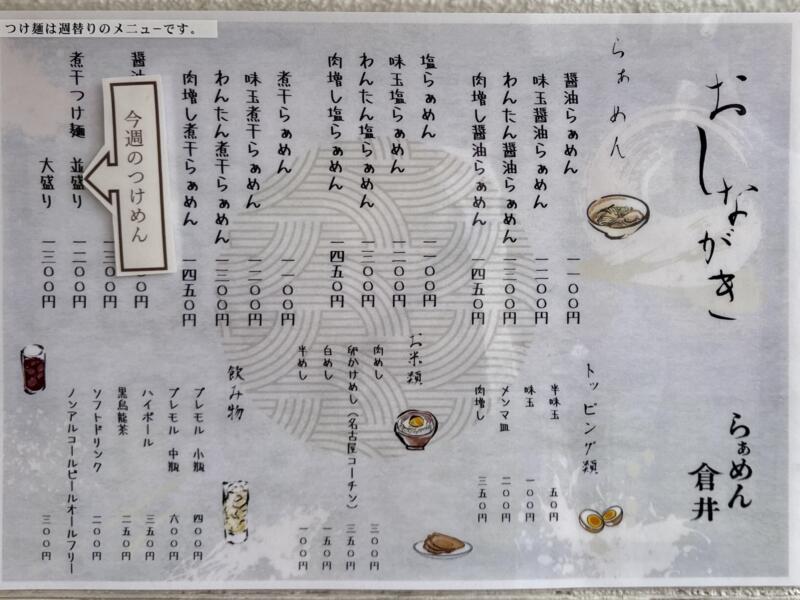 つけ麺は週替りのメニューです。
おしながき
らぁめん 倉井
らぁめん
醤油らぁめん 一一〇〇円
味玉醤油らぁめん 一二〇〇円
わんたん醤油らぁめん 一三〇〇円
肉増し醤油らぁめん 一四五〇円
塩らぁめん 一一〇〇円
味玉塩らぁめん 一二〇〇円
わんたん塩らぁめん 一三〇〇円
肉増し塩らぁめん 一四五〇円
煮干らぁめん 一一〇〇円
味玉煮干らぁめん 一二〇〇円
わんたん煮干らぁめん 一三〇〇円
肉増し煮干らぁめん 一四五〇円
今週のつけめん
醤油
煮干つけ麺 並盛り 一二〇〇円
大盛り 一三〇〇円
トッピング類
半味玉 五〇円
味玉 一〇〇円
メンマ皿 二〇〇円
肉増し 三五〇円
お米類
肉めし 三〇〇円
卵かけめし(名古屋コーチン) 三五〇円
白めし 一五〇円
半めし 一〇〇円
飲み物
プレモル 小瓶 四〇〇円
プレモル 中瓶 六〇〇円
ハイボール 三五〇円
黒烏龍茶 二五〇円
ソフトドリンク 二〇〇円
ノンアルコールビールオールフリー 三〇〇円